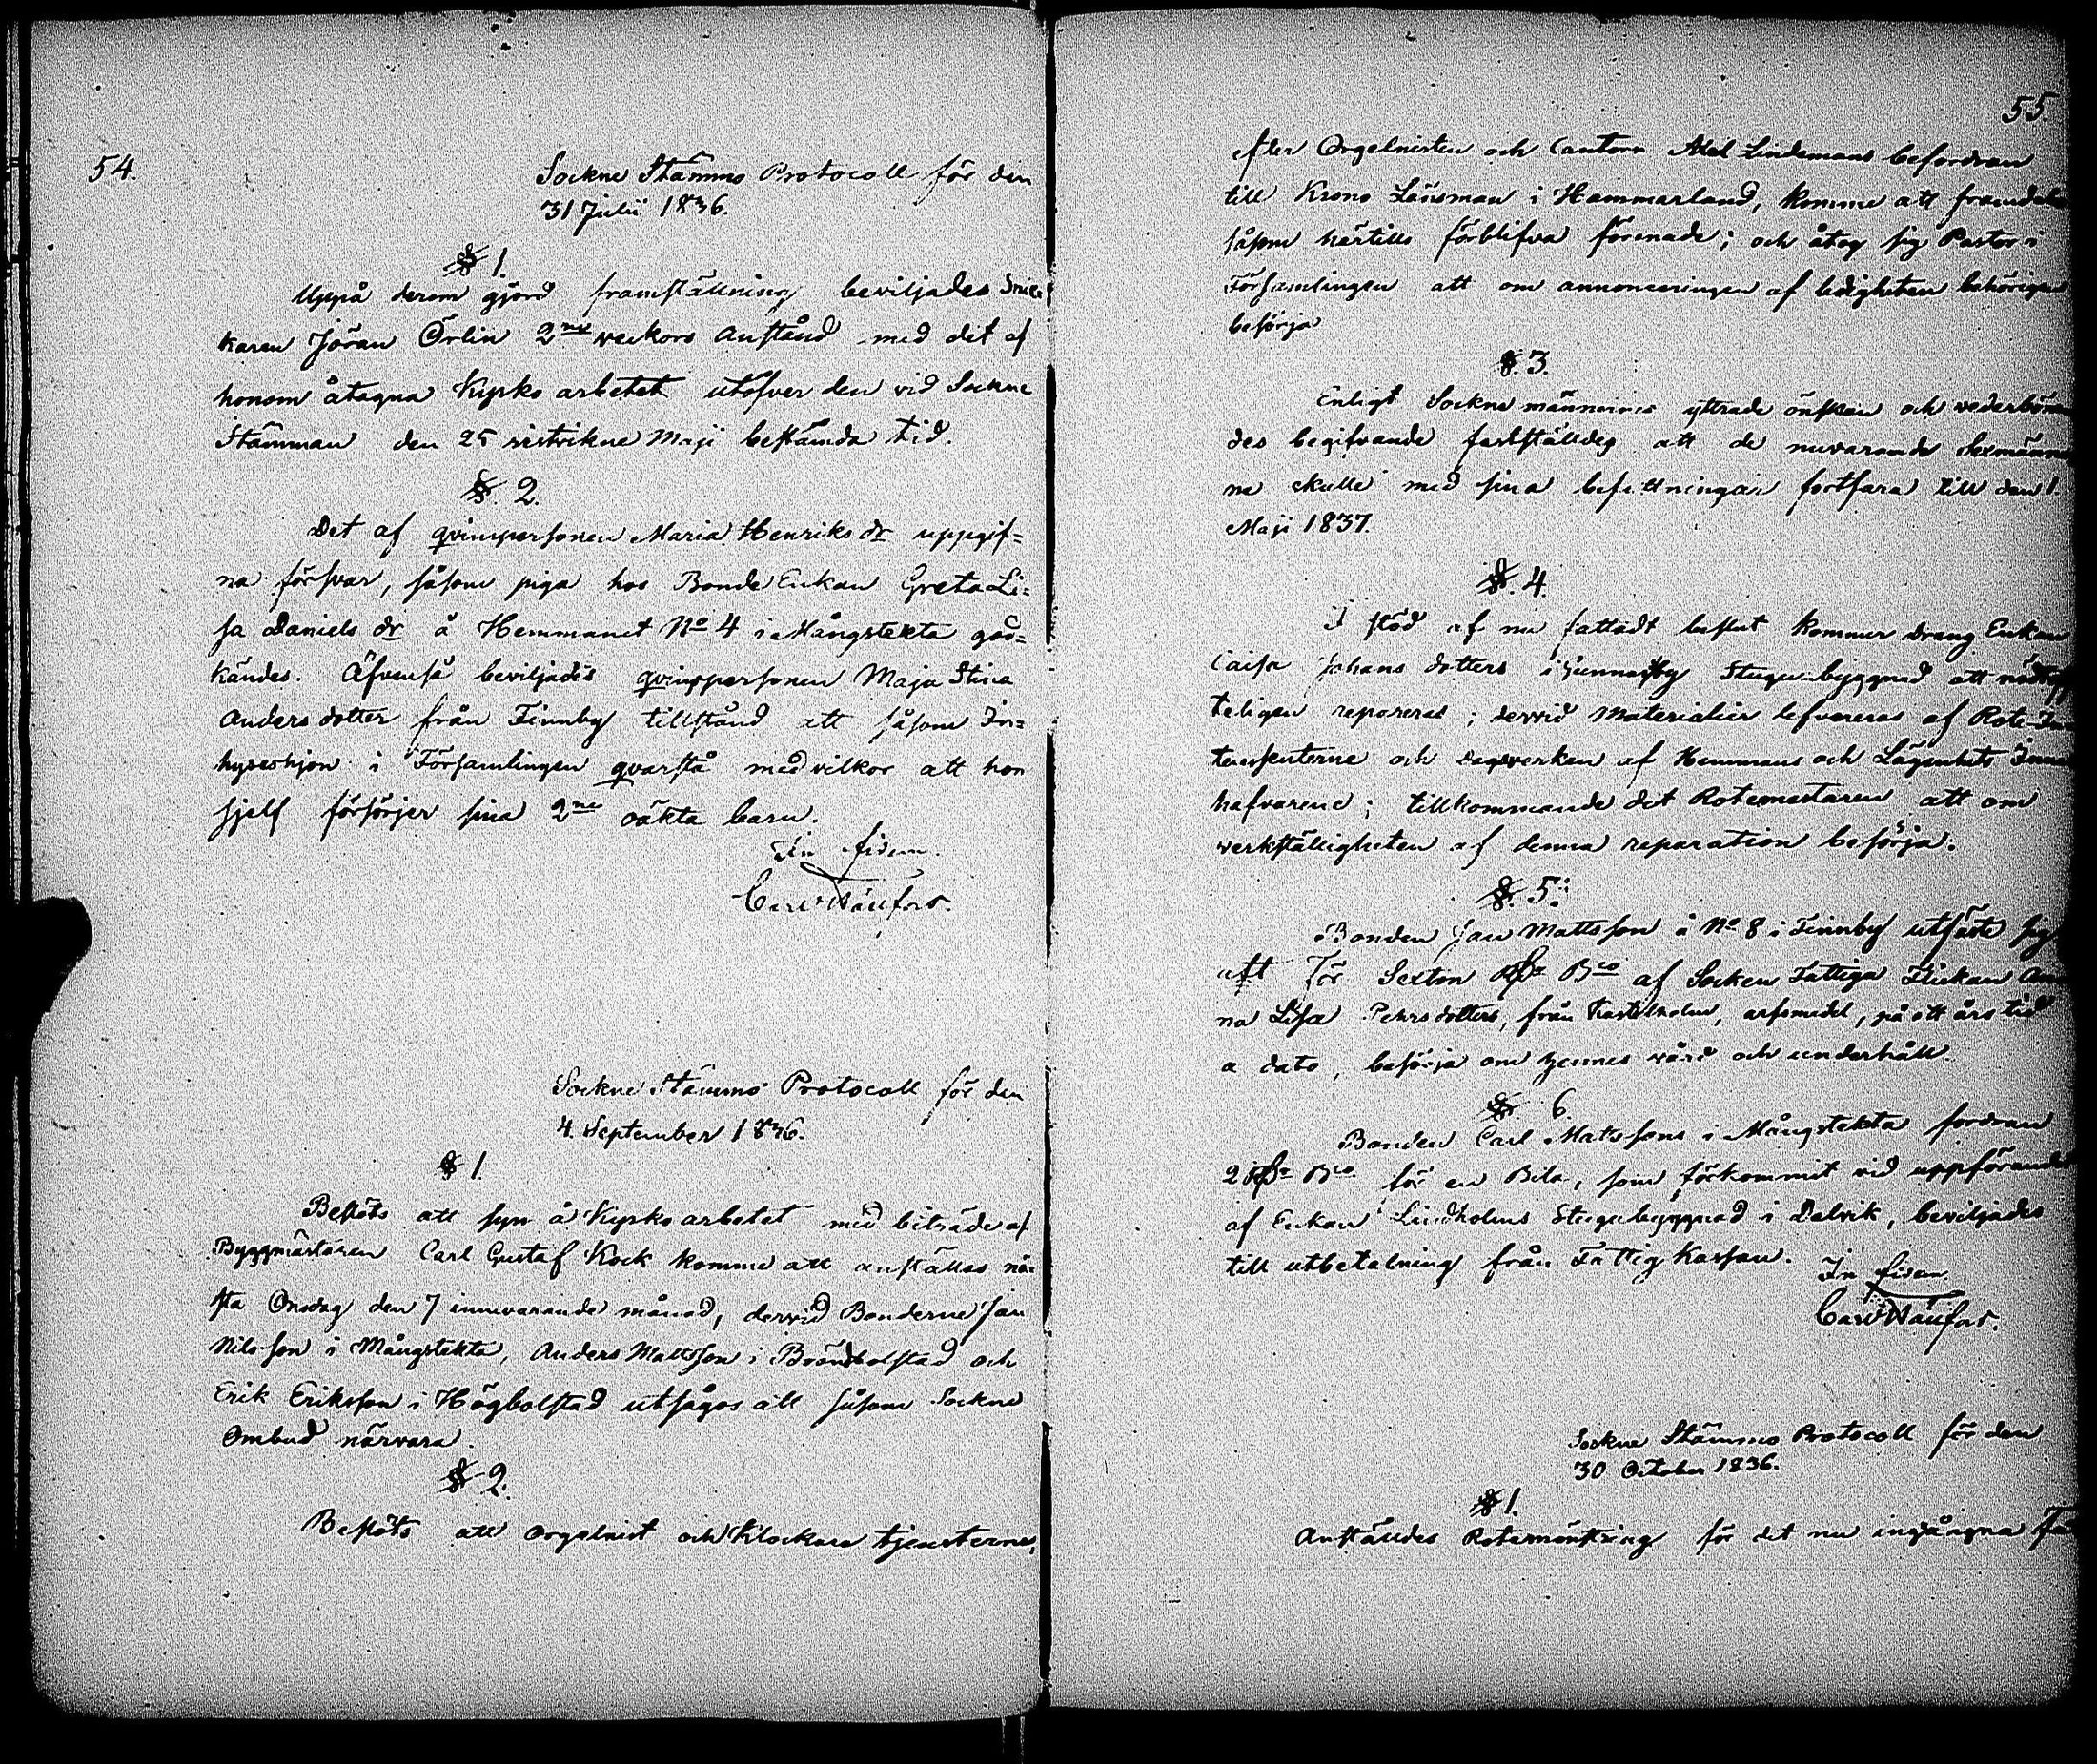 54.
Sockne Stämmo Protocoll för den
31 Julii 1836.
§ 1.
Uppå derom gjord framställning beviljades Snic=
karen Jöran Örlin 2ne veckors Anstånd med det af
honom åtagna Kyrko arbetet utöfver den vid Sockne
Stämman den 25 sistvikne Maji bestämda tid.
§. 2.
Det af qvinspersonen Maria Henriks dr uppgif=
na försvar, såsom piga hos Bonde Enkan Greta Li=
sa Daniels dr å Hemmanet No 4 i Mångstekta god=
kändes. Äfvenså beviljades qvinspersonen Maja Stina
Anders dotter från Finnby tillstånd att såsom In=
hyseshjon i Församlingen qvarstå med vilkor att hon
sjelf försörjer sina 2ne oäkta barn.
In fidem
Carl
Sockne Stämmo Protocoll för den
4. September 1836.
§ 1.
Beslöts att syn å Kyrko arbetet med biträde af
Byggmästaren Carl Gustaf Kock komme att anställas nä=
sta Onsdag den 7 innevarande månad, dervid Bönderne Jan
Nilsson i Mångstekta, Anders Mattsson i Brändbolstad och
Erik Eriksson i Högbolstad utsågos att såsom Sockne
Ombud närvara.
§ 2.
Beslöts att Orgelnist och Klockare tjensterne,
55.
efter Orgelnisten och Cantorn Abel Lindemans befordran
till Krono Länsman i Hammarland, komme att framdeles
såsom härtills förblifva förenade; och åtog sig Pastor i
Församlingen att om annonceringen af ledigheten behörigen
besörja
§. 3.
Enligt Sockne männernes yttrade önskan och vederböran
des begifvande fastställdes att de nuvarande Sexmänner
ne skulle med sina befattningar fortfara till den 1.
Maji 1837.
§. 4.
I stöd af nu fattadt beslut kommer dräng Enkan
Caisa Johans dotters i Gunnarsby Stugu-byggnad att nödtorf
teligen repareras; dervid Materialier lefvereras af Rote-In
tressenterne och dagsverken af Hemmans och Lägenhets Inne
hafvarene; tillkommande det Rotemästaren att om
verkställigheten af denna reparation besörja.
§. 5.
Bonden Jan Mattsson å No 8 i Finnby utfäste sig
att för Sexton Rbr Bco af Socken Fattiga Flickan An
na Lisa Pehrs dotters, från Kastelholm, arfsmedel, på ett års tid
a dato, besörja om hennes vård och underhåll.
§. 6.
Bonden Carl Matssons i Mångstekta fordran
2 Rbr Bco för en Bila, som förkommit vid uppförandet
af Enkan Lindholms Stugubyggnad i Delvik, beviljades
till utbetalning från Fattig Kassan.
In fidem
Carl
Sockne Stämmo Protocoll för den
30 October 1836.
§ 1.
Anställdes Rotemönstring för det nu ingångna